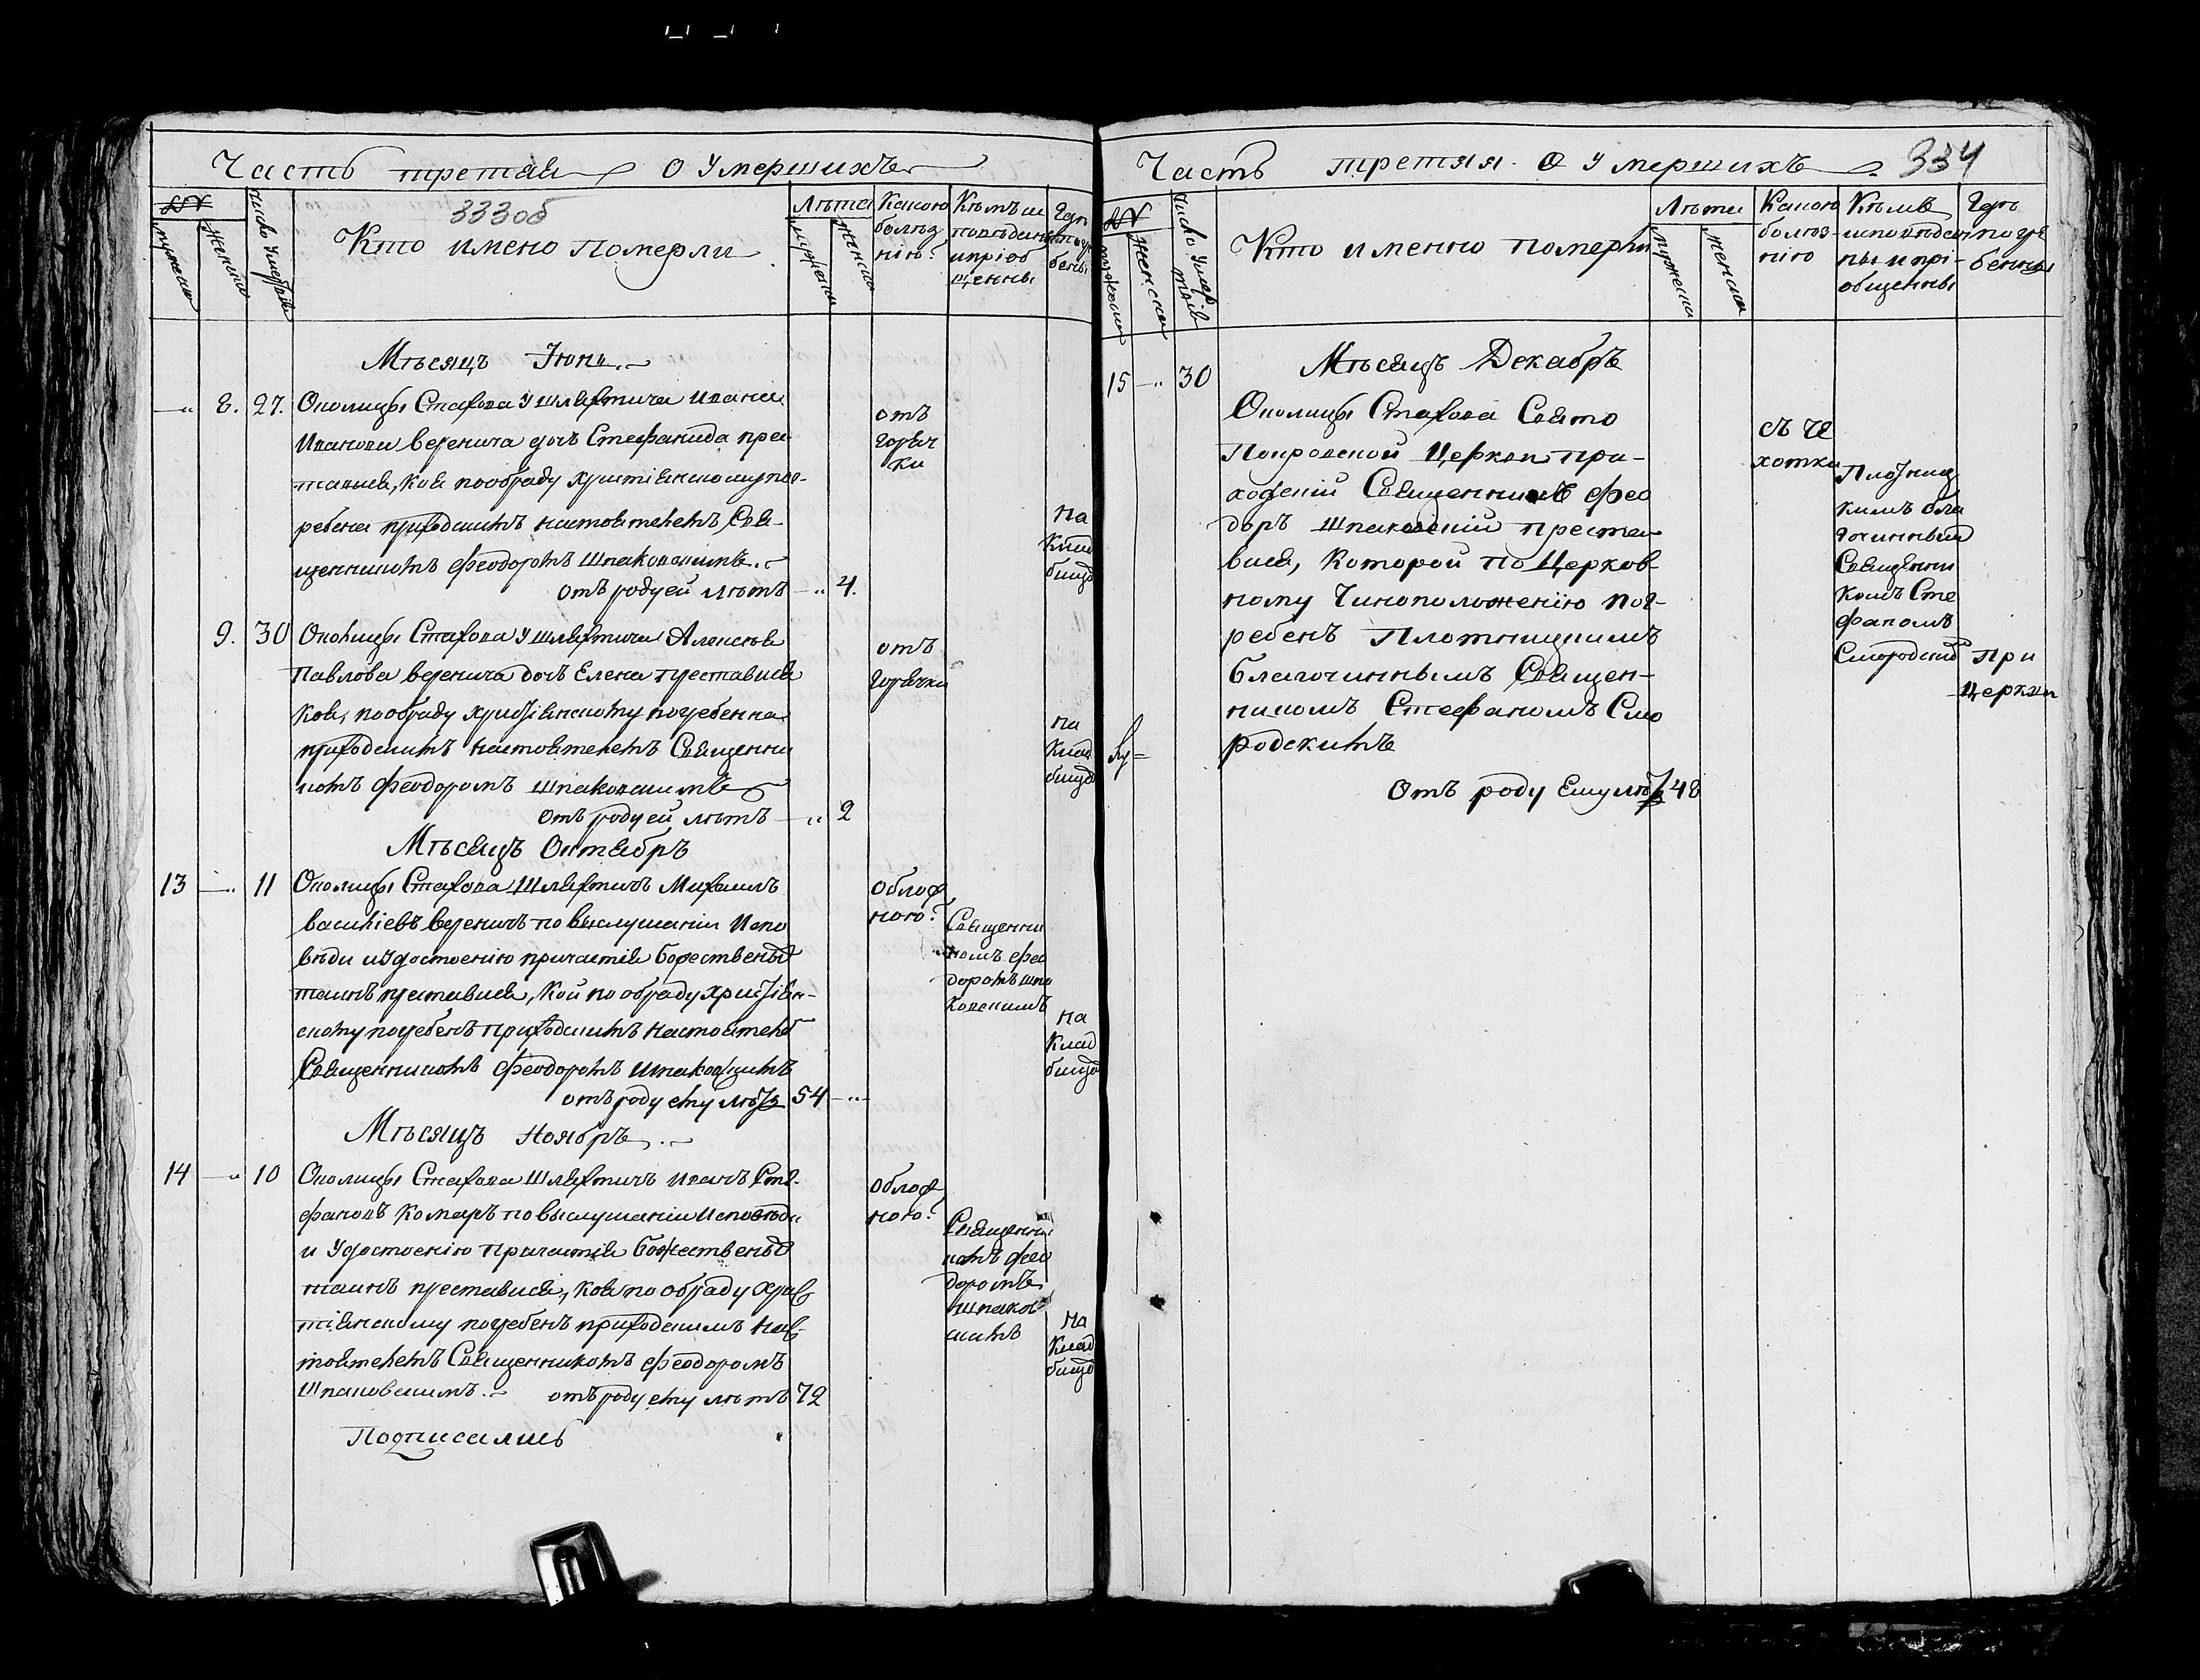 Часть третая О Умершихъ
333об
№
мужеска
женска
число умершихъ
Кто имено Померли
Лѣта
мужеска
женска
Какою болѣз нію?
Кѣмъ и повѣдани и пріоб щенны
Гдѣ погре бены
Мѣсяцъ Іюнь
8. 27. Околицы Стахова У шляхтича Ивана
Иванова веренича дочь Стефанида пре-
тавися, коя по обряду христіянскому пог-
ребена приходскимъ настоятелемъ Свя-
щенникомъ Феодоромъ Шпаковскимъ
отъ роду ей лѣтъ 4.
отъ
горяч
ки
на
Клад
бищѣ
9. 30 Околицы Стахова У шляхтича Алексѣя
Павлова веренича дочъ Елена преставися
коя, по обряду христіянскому погребенна
приходскимъ настоятелемъ Священни
комъ Феодоромъ Шпаковскимъ
отъ роду ей лѣтъ 2
отъ
горячки
на
Клад
бищѣ
Мѣсяцъ Октябръ
13 11 Околицы Стахова Шляхтичъ Михаилъ
василіевъ вереничъ по выслушаніи Испо
вѣди и Удостоенію причастія Божественых
таинъ преставися, Кой по обряду Христіян-
скому погребенъ приходскимъ настоятелем
Священникомъ Феодоромъ Шпаковскимъ
отъ роду ему лѣтъ 54
облож
ною?
Священни
комъ Фео
доромъ шпа
ковскимъ
на
Клад
бищѣ
Мѣсяцъ Ноябръ
14 10 Околицы Стахова Шляхтичъ Иванъ Сте-
фановъ Комаръ по выслушаніи Исповѣди
и Удостоенію Причастія Божественых
таинъ преставися, коя по обряду Хрис
тіянскому погребенъ приходскимъ нас-
тоятелемъ Священникомъ Феодоромъ
Шпаковскимъ. отъ роду ему лѣтъ 72
облож
ною?
Священни
комъ Фео
доромъ
шпаков
скимъ
на
Клад
бищѣ
Подписались
Часть третяя О Умершихъ 334
№
мужеска
женска
число умер
шихъ
Кто именно померли
Лѣта
мужеска
женска
Какою
болѣз-
нію
Кѣмъ
исповѣдан
ны и прі-
общенны
Гдѣ
погре
бенны
Мѣсяцъ Декабръ
15 30
Околицы Стахова Свято
Покровской Церкви при-
ходскій Священникъ Фео
доръ Шпаковскій преста-
вися, Которой по Церков-
ному Чиноположенію пог-
ребенъ Плотницкимъ
благочиннымъ Священ-
никомъ Стефаномъ Смо
родскимъ
Отъ роду Ему лѣтъ 48
съ че
хотки
Плотниц
кимъ бла
гочинным
Священни
комъ Сте
фаномъ
Смородским
При
церкви